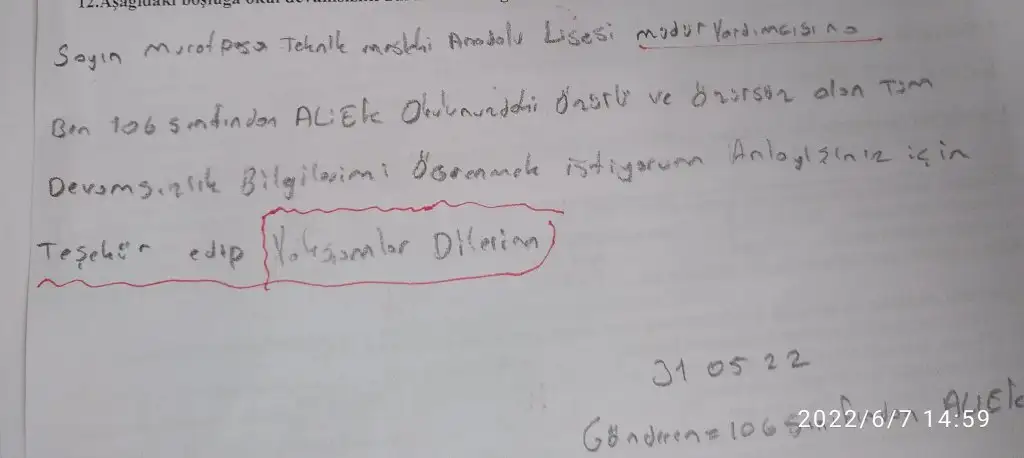 12.Aşağıdaki boşluğa okul
Sayın muratpaşa Teknik meslki Anadolu Lisesi müdür Yardımcısına
Ben 106 sınıfından ALİ Ek Okulunuzdki Özürlü ve özürsüz olan Tüm
Devamsızlık Bilgilerimi Öğrenmek istiyorum Anlayışınız için
Teşekür edip Yakışamlar Dilerim
31 05 22
Gönderen = 106 sınıfından ALİ Ek
2022/6/7 14:59